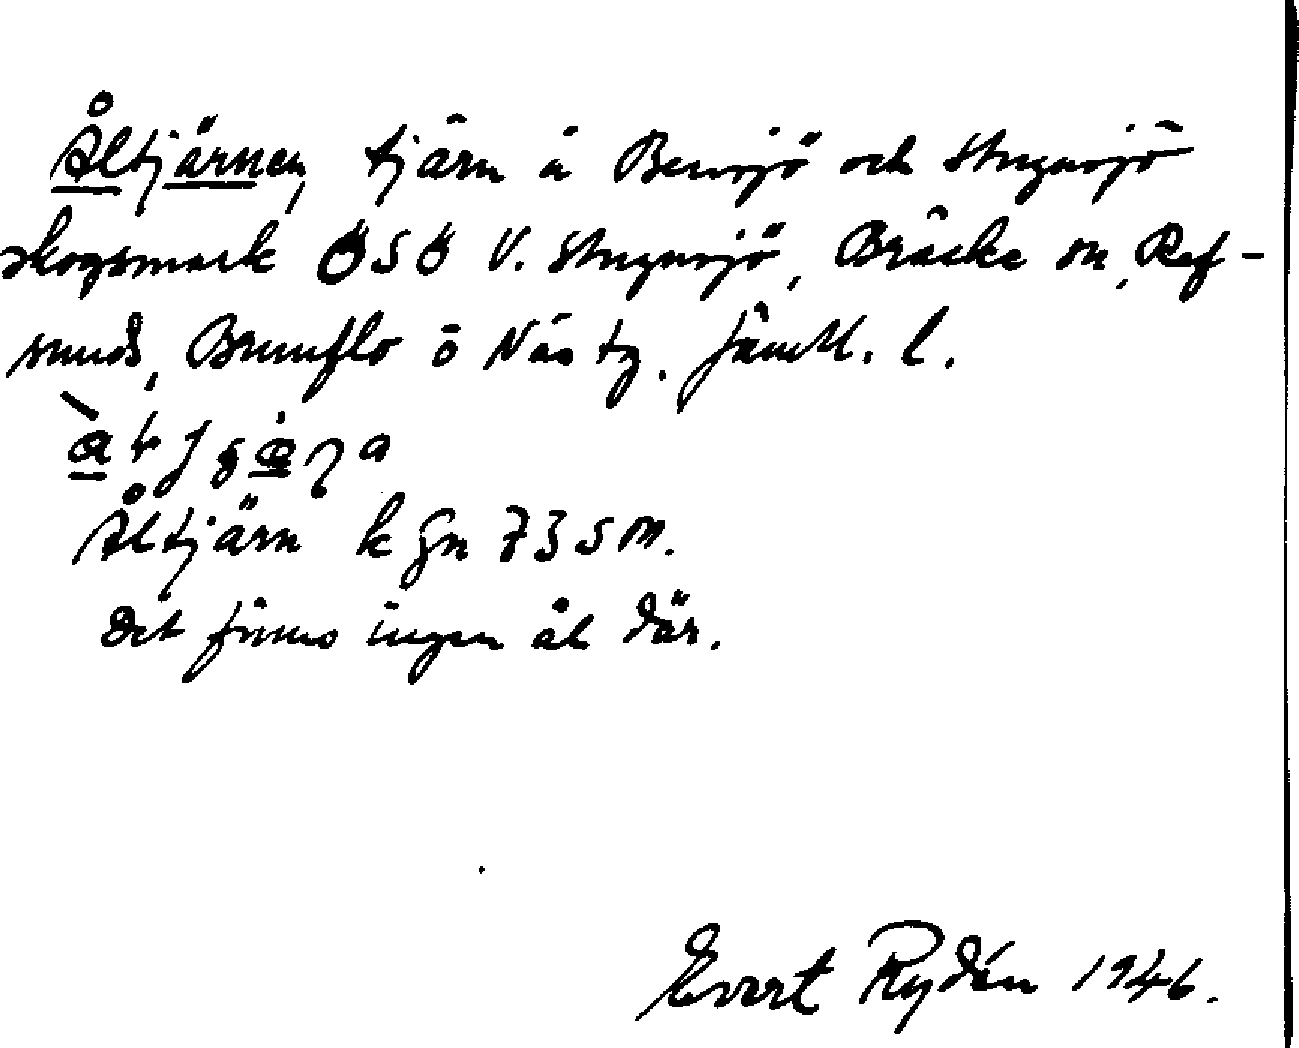 Åltjärnen, tjärn å Bensjö och Stugusjö
skogsmark ÖSÖ V. Stugusjö, Bräcke sn, Ref-
sunds, Brunflo o Näs tg. Jämtl. l.
Åltjärn k Gn 73 SM.
Det finns ingen ål där.
Evert Rydén 1946.